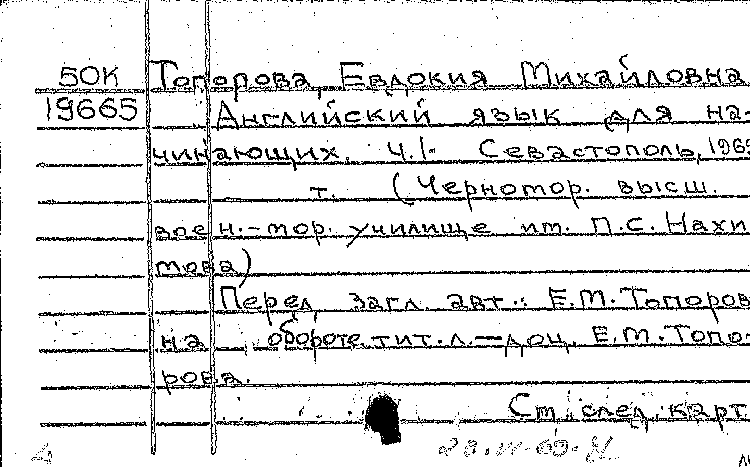 50К Топорова, Евдокия Михайловна
19665 Английский язык для на-
чинающих. Ч.1- Севастополь, 1965
т. (Черномор. высш.
воен.-мор. училище им. П.С. Нахи
мова)
Перед загл. авт.: Е.М. Топоров
на обороте тит. л. — доц. Е.М. Топо-
рова.
См. след. карт